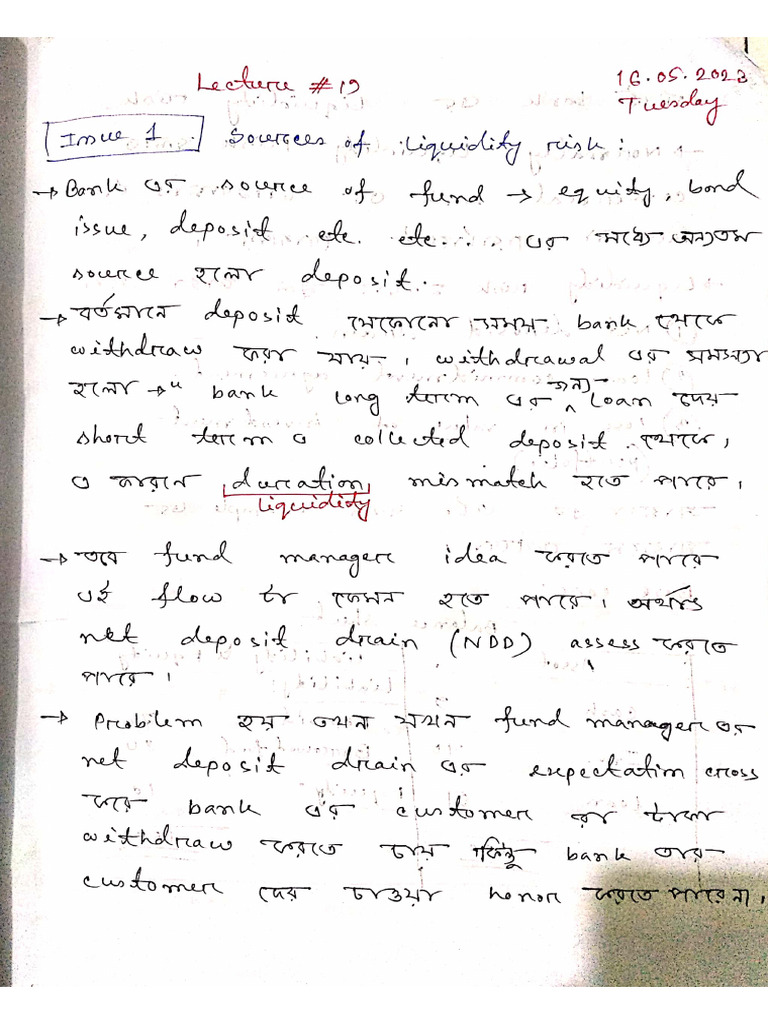 Lecture #19
16.05.2023
Tuesday
Issue 1 Sources of liquidity risk:
→ Bank এর source of fund → equity, bond
issue, deposit etc. etc. এর মধ্যে অন্যতম
source হলো deposit.
→ বর্তমানে deposit যেকোনো সময় bank থেকে
withdraw করা যায়। withdrawal এর সমস্যা
হলো → " bank long term এর জন্য loan দেয়
short term এ collected deposit থেকে,
এ কারনে duration mismatch হতে পারে।
liquidity
→ তবে fund manager idea করতে পারে
এই flow টা কেমন হতে পারে। অর্থাৎ
net deposit drain (NDD) assess করতে
পারে।
→ Problem হয় তখন যখন fund manager এর
net deposit drain এর expectation cross
করে bank এর customer রা টাকা
withdraw করতে চায় কিন্তু bank তার
customer দের চাওয়া honor করতে পারে না।